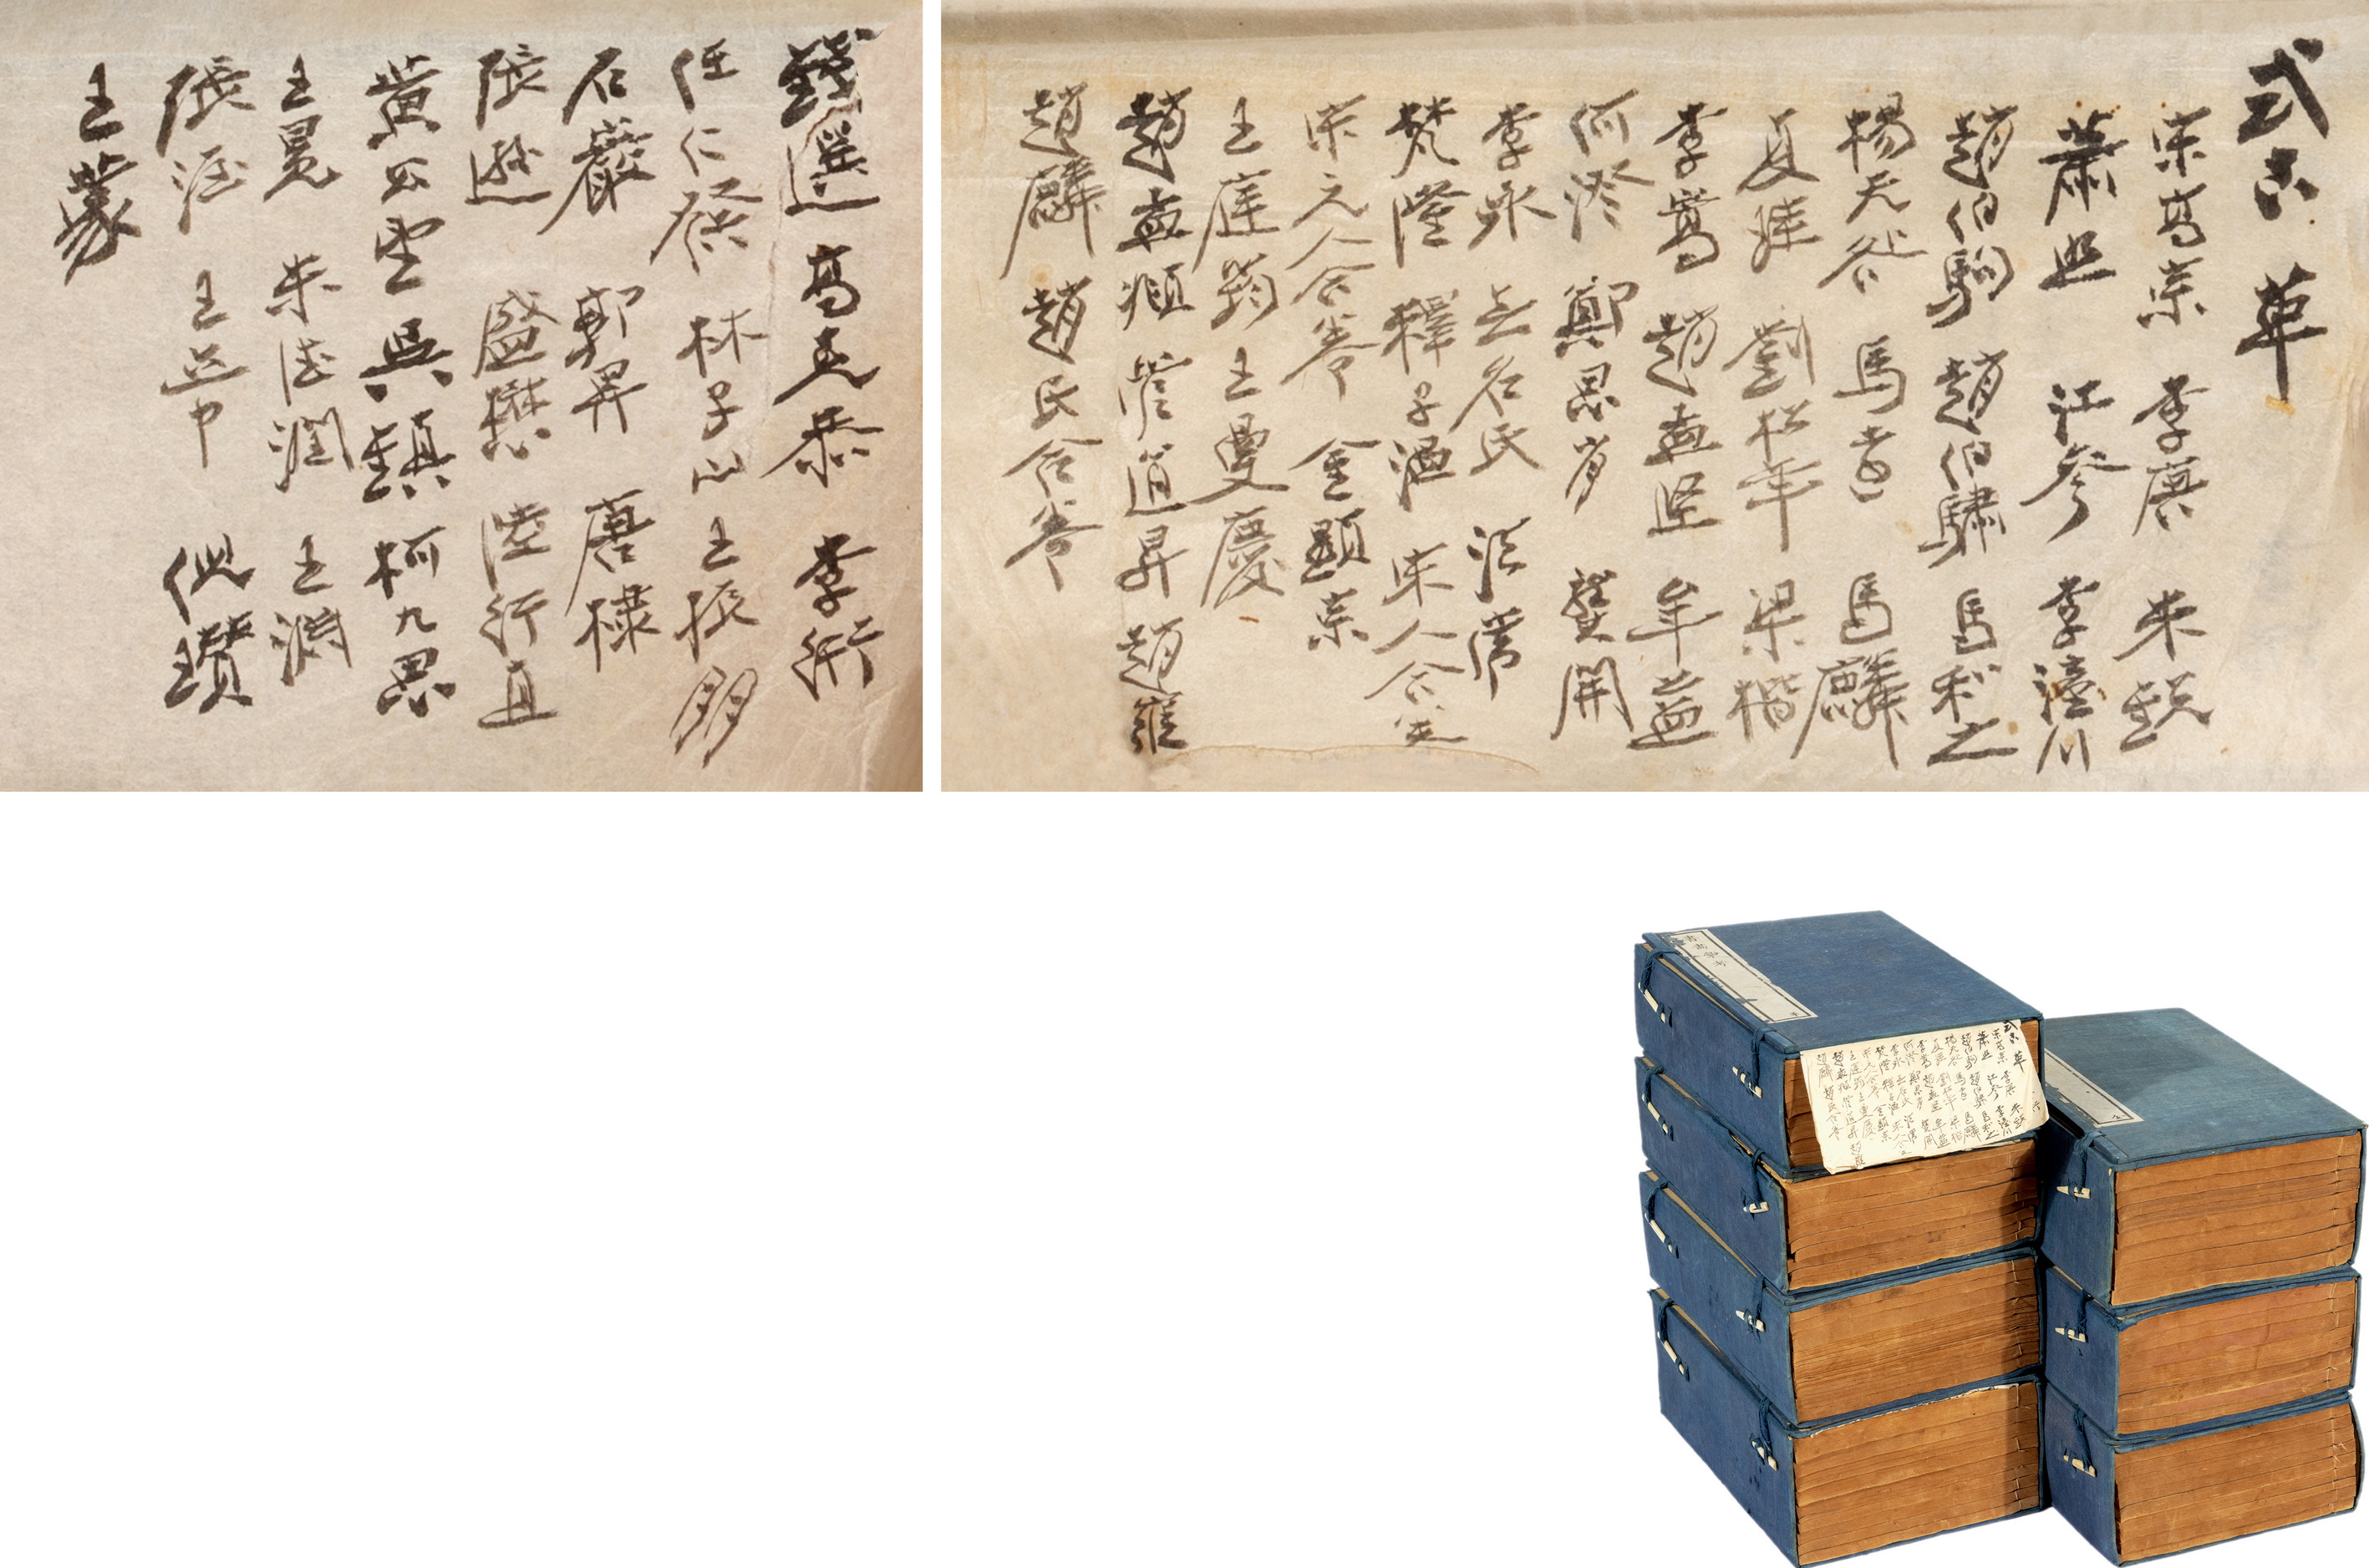 式古 草
宋高宗 李唐 朱銳
蕭照 江參 李漳川
趙伯駒 趙伯驌 馬和之
楊无咎 馬遠 馬麟
夏珪 劉松年 梁楷
李嵩 趙孟堅 牟益
何澄 鄭思肖 龔開
李永 無名氏 法常
梵隆 釋子溫 宋人合
宋元人合卷 金顯宗
王庭筠 王曼慶
趙孟頫 管道昇 趙雍
趙麟 趙氏合卷
錢選 高克恭 李衎
任仁發 林子山 王振朋
石巖 郭畀 唐棣
張遜 盛懋 陸行直
黃公望 吳鎮 柯九思
王冕 朱德潤 王淵
張渥 王立中 倪瓚
王蒙